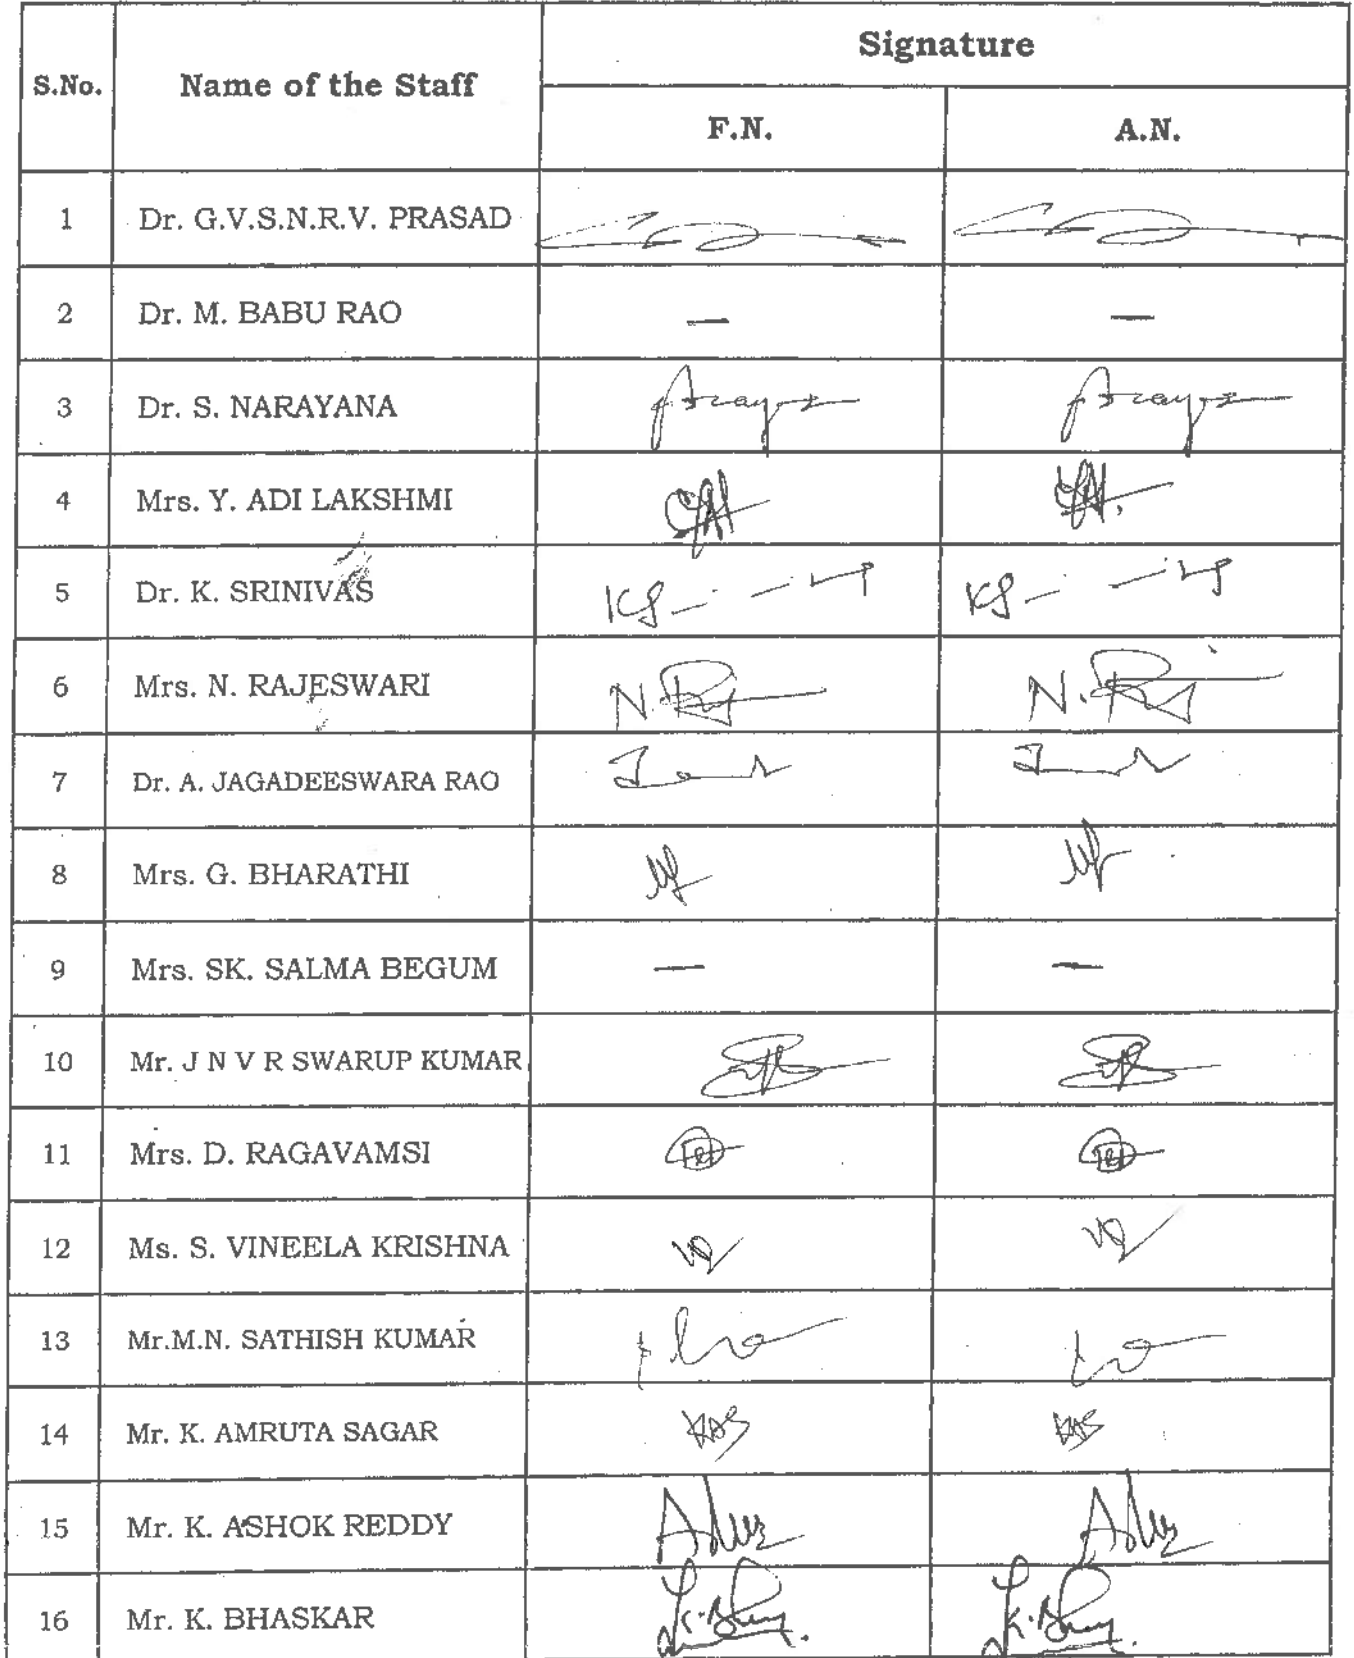 Signature
S.No. Name of the Staff
F.N. A.N.
1 Dr. G.V.S.N.R.V. PRASAD
2 Dr. M. BABU RAO — —
3 Dr. S. NARAYANA
4 Mrs. Y. ADI LAKSHMI
5 Dr. K. SRINIVAS
6 Mrs. N. RAJESWARI
7 Dr. A. JAGADEESWARA RAO
8 Mrs. G. BHARATHI
9 Mrs. SK. SALMA BEGUM — —
10 Mr. J N V R SWARUP KUMAR
11 Mrs. D. RAGAVAMSI
12 Ms. S. VINEELA KRISHNA
13 Mr.M.N. SATHISH KUMAR
14 Mr. K. AMRUTA SAGAR KAS KAS
15 Mr. K. ASHOK REDDY
16 Mr. K. BHASKAR